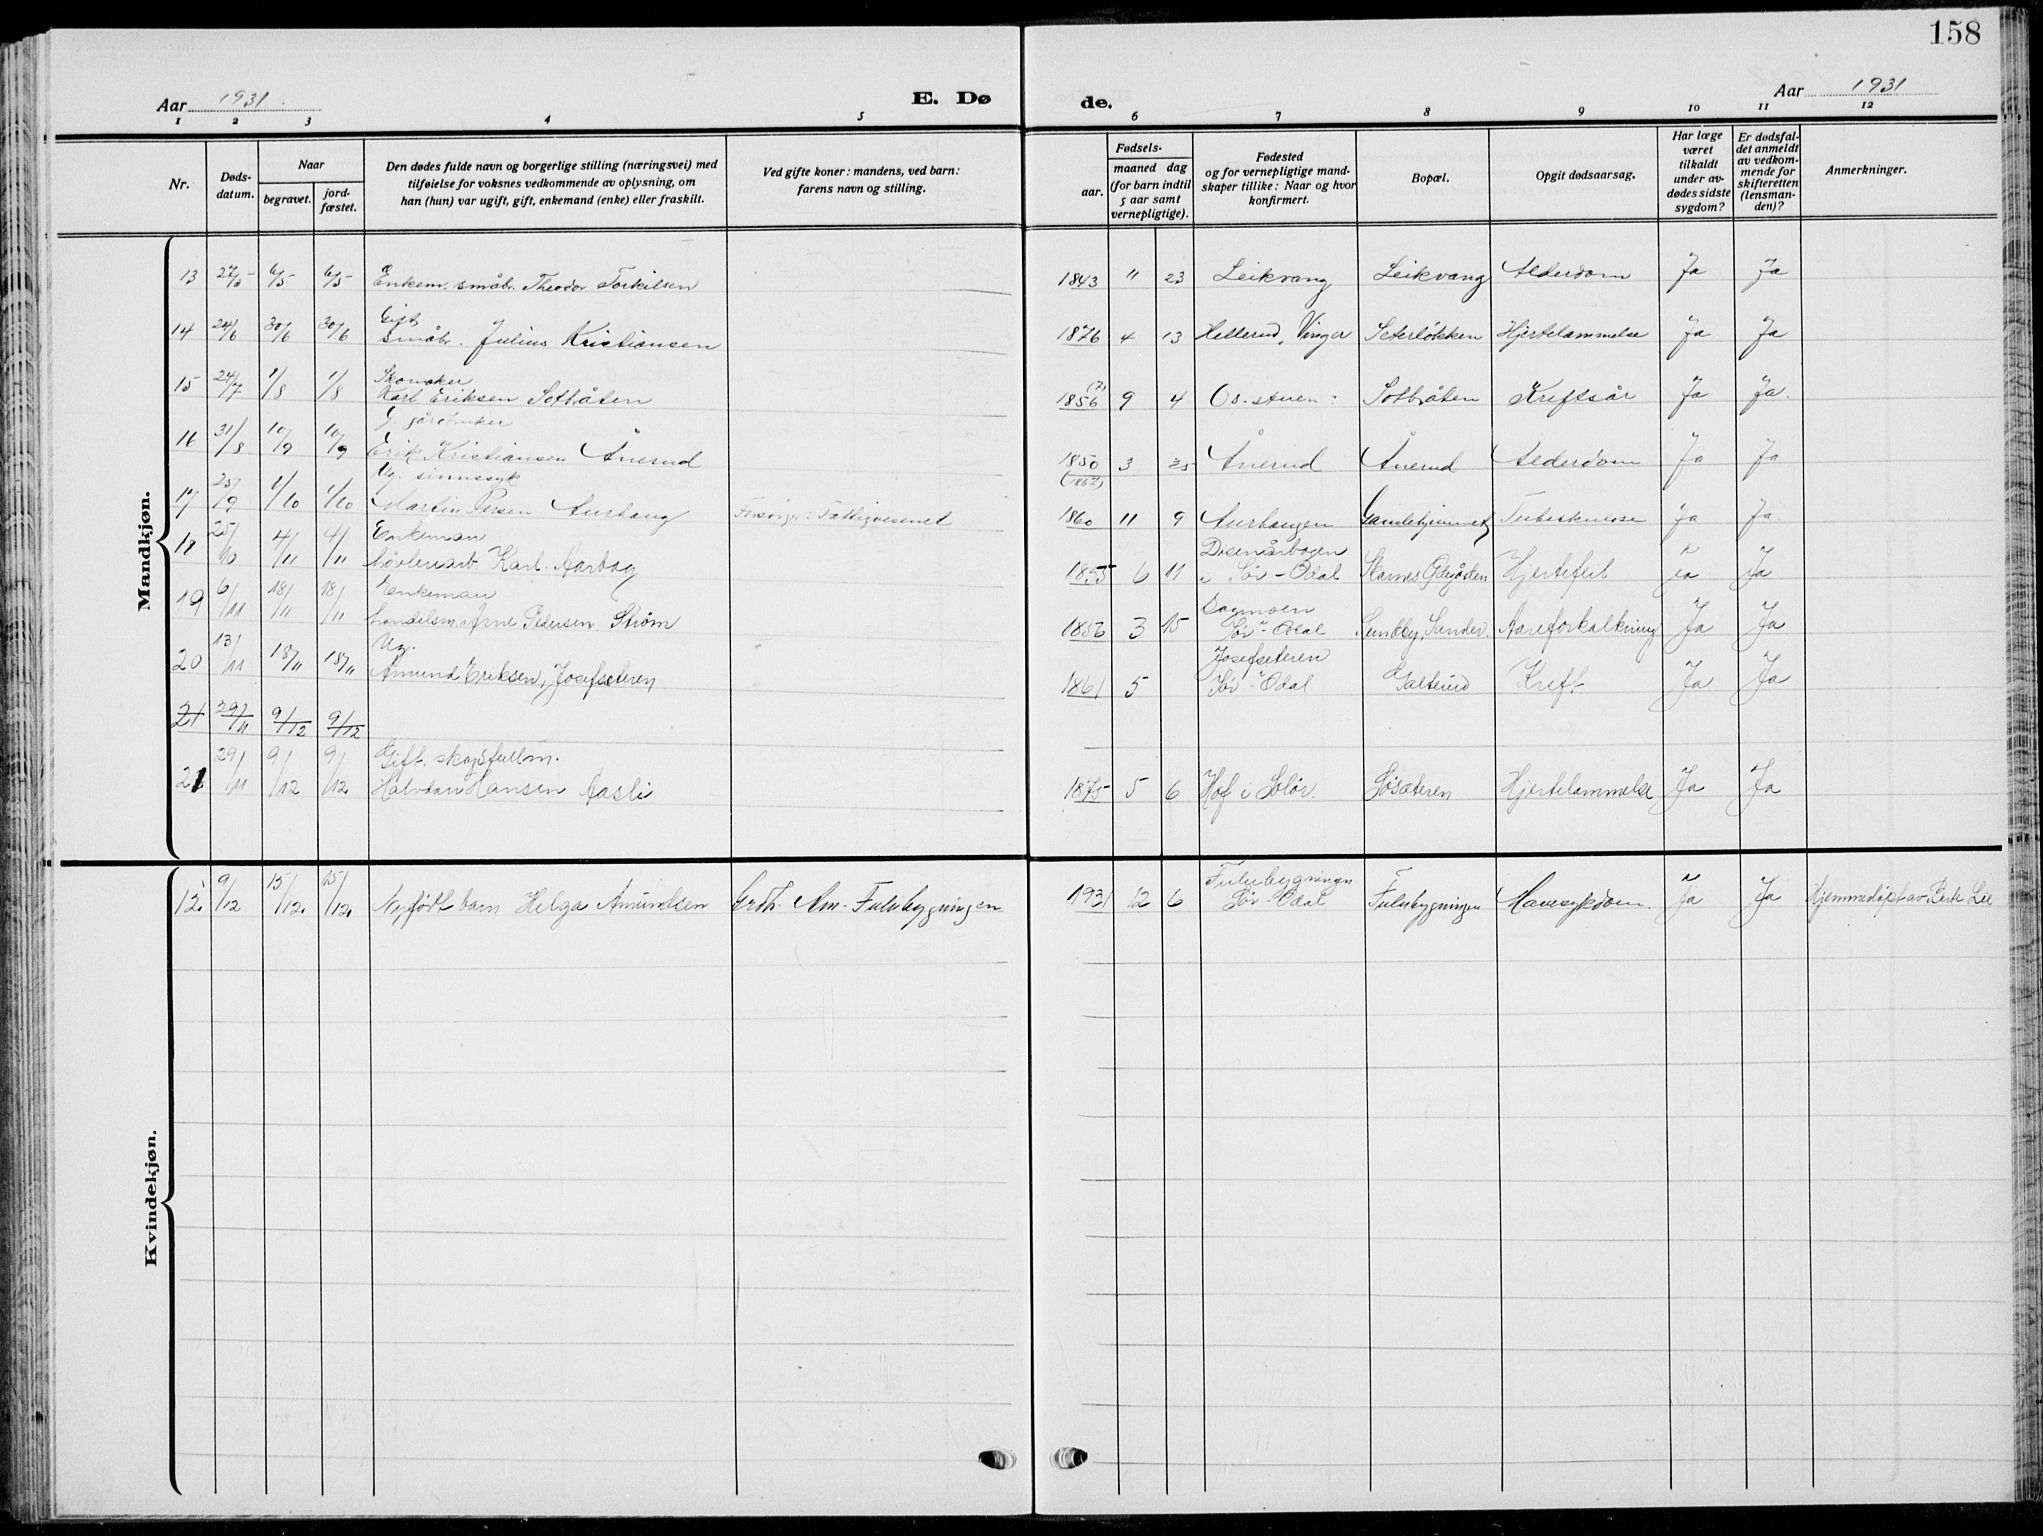 158
Aar 1931
E. Dø
de.
Aar 1931
1 2 3 4 5 6 7 8 9 10 11 12
Nr.
Døds-
datum.
Naar
begravet.
jord-
fæstet.
Den dødes fulde navn og borgerlige stilling (næringsvei) med
tilføielse for voksnes vedkommende av oplysning, om
han (hun) var ugift, gift, enkemand (enke) eller fraskilt.
Ved gifte koner: mandens, ved barn:
farens navn og stilling.
Fødsels-
aar.
maaned dag
(for barn indtil
5 aar samt
vernepligtige).
Fødested
og for vernepligtige mand-
skaper tillike: Naar og hvor
konfirmert.
Bopæl.
Opgit dødsaarsag.
Har læge
været
tilkaldt
under av-
dødes sidste
sygdom?
Er dødsfal-
det anmeldt
av vedkom-
mende for
skifteretten
(lensman-
den)?
Anmerkninger.
Mandkjøn.
13 27/5 6/5 6/5 Enkem. småbr. Theodor Torkilsen 1843 " 23 Leikvang Leikvang Alderdom Ja Ja
Gift
14 24/6 30/6 30/6 Småbr. Julius Kristiansen 1876 4 13 Hellerud, Vinger Seterløkken Hjertelammelse Ja Ja
Skomaker
15 24/7 1/8 1/8 Karl Eriksen Sotbråten 1856 (?) 9 4 Sotbråten Kreftsår Ja Ja.
G. gårdbruker
16 31/8 10/9 10/9 Erik Kristiansen Ånerud 1850 3 25 Ånerud Ånerud Alderdom Ja Ja
(1862)
Ug. sinnssyk
17 25/9 1/10 1/10 Martin Persen Aurhaug Forsørger: Fattigvesenet 1860 11 9 Aurhaugen Gamlehjemmet Tuberkulose Ja Ja
Enkeman
18 25/10 4/11 4/11 høvleriarb. Karl Aarbog 1855 6 11 Disenårbogen
i Sør-Odal Skarnes Hjertefeil ja Ja
Enkeman
19 6/11 18/11 18/11 handelsm. Arne Pedersen Strøm 1856 3 15 Dagmoen
Sør-Odal Sundby, Sander. Aareforkalkning Ja Ja
Ug.
20 13/11 18/11 18/11 Amund Eriksen, Josefseteren 1861 5 Josefseteren
Sør-Odal Galterud Kreft Ja Ja
21 29/11 9/12 9/12
Gift. skogsfullm.
21 29/11 9/12 9/12 Halvdan Hansen Aasli 1875 5 6 Hof i Solør. Gjøsæteren Hjertelammelse Ja Ja
Kvindekjøn.
12. 9/12 15/12. 15/12. Nyfødt barn Helga Amundsen Grdh. Am. Fulubygningen 1931 12 6 Fulubygningen
Sør-Odal Fulubygningen Mavesykdom. Ja Ja Hjemmedøpt av Berte Lie